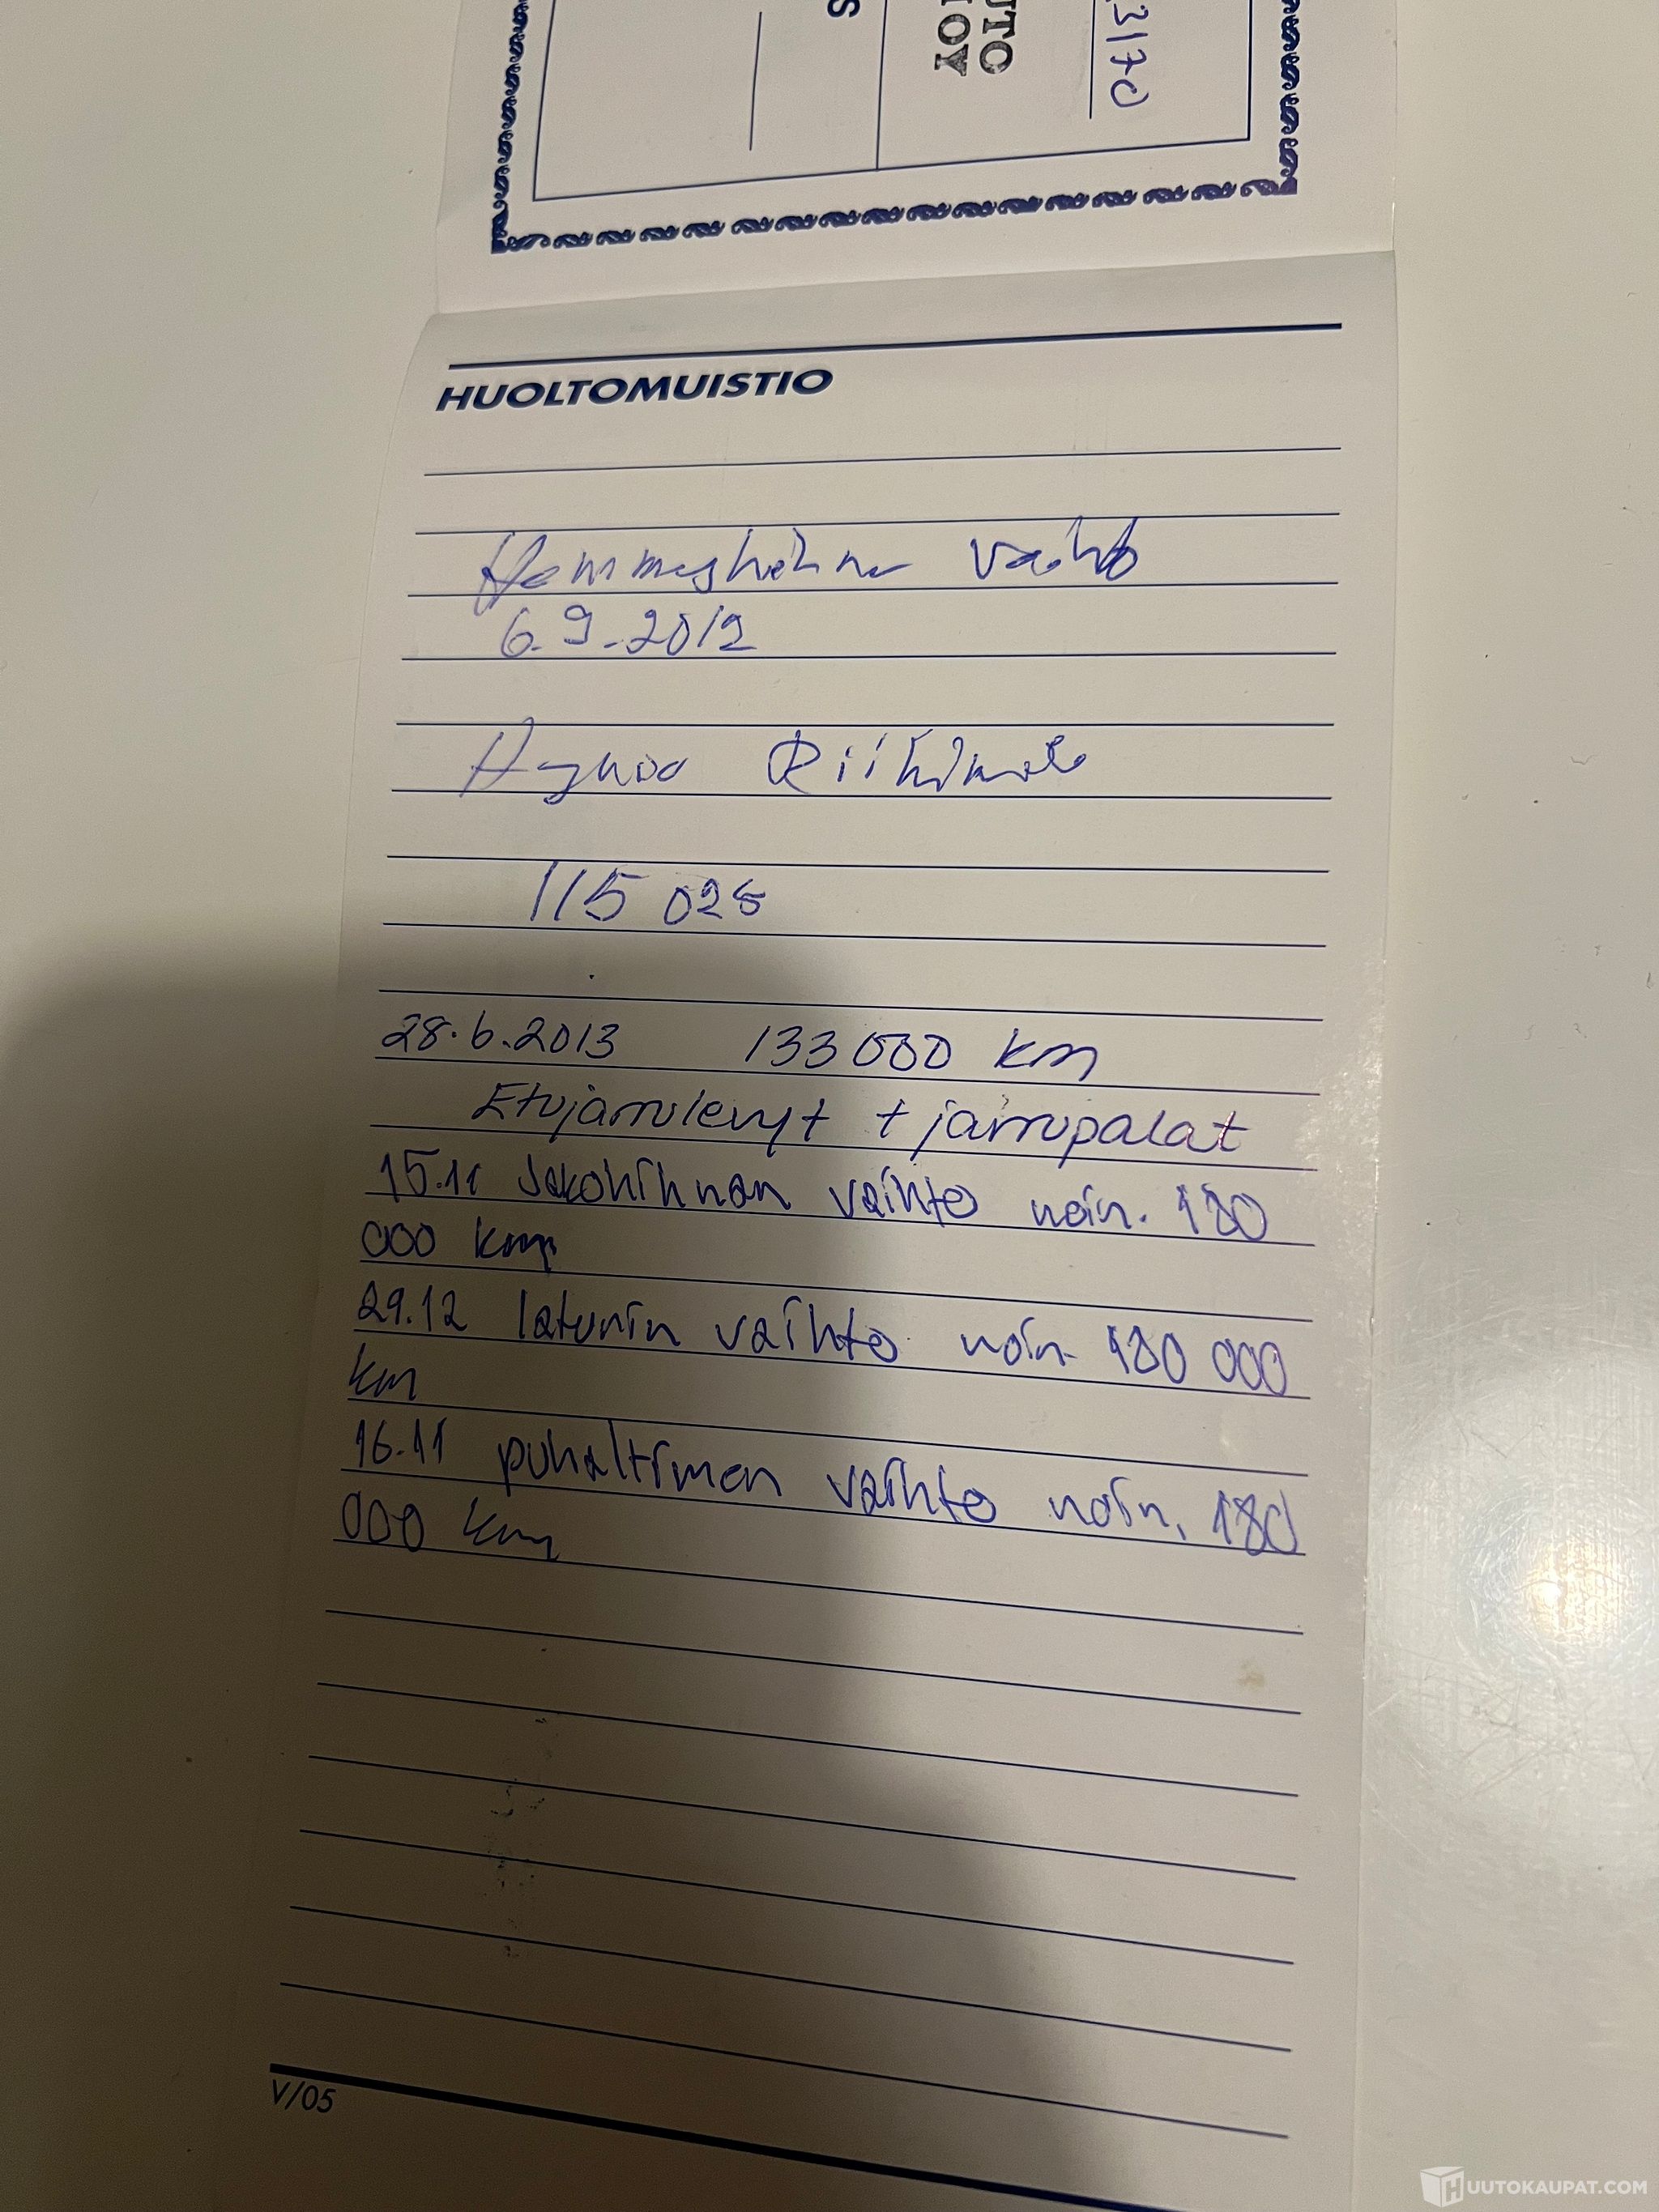 3170
UTO
OY
S
HUOLTOMUISTIO
Hammashihna vaihto
6.9.2012
Riihimäki
115 028
28.6.2013 133 000 km
Etujarrulevyt + jarrupalat
15.11 Jakohihnan vaihto noin. 180
000 km
29.12 laturin vaihto noin 180 000
km
16.11 puhaltimen vaihto noin. 180
000 km
V/05
HUUTOKAUPAT.COM